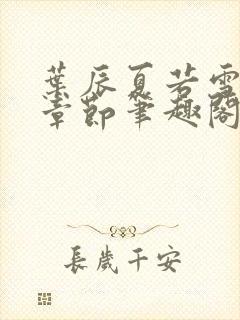 葉辰夏若雪
章節筆趣閣
長歲千安